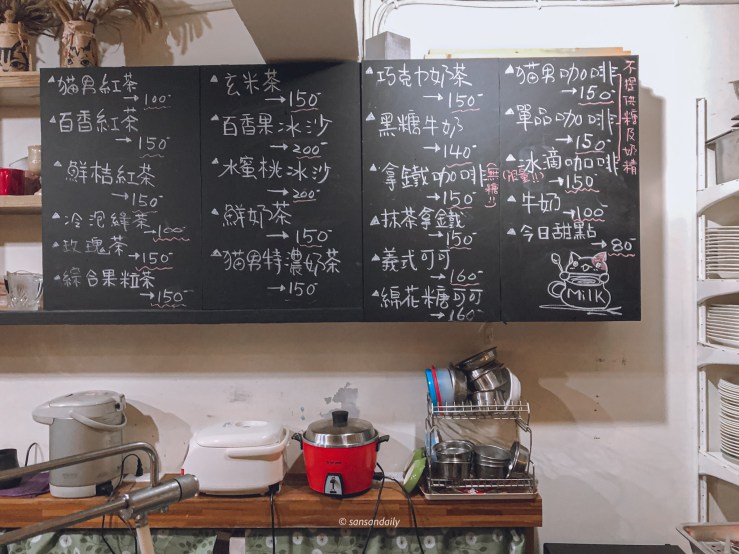 ▲貓男紅茶
→100
▲百香紅茶
→150
▲鮮桔紅茶
→150
▲冷泡綠茶
→100
▲玫瑰茶
→150
▲綜合果粒茶
→150
▲玄米茶
→150
▲百香果冰沙
→200
▲水蜜桃冰沙
→200
▲鮮奶茶
→150
▲貓男特濃奶茶
→150
▲巧克力奶茶
→150
▲黑糖牛奶
→140
▲拿鐵咖啡
→150
無糖
▲抹茶拿鐵
→150
▲義式可可
→160
▲綿花糖可可
→160
▲貓男咖啡
→150
▲單品咖啡
→150
▲冰滴咖啡
(限量)
→150
不提供糖及奶精
▲牛奶
→100
▲今日甜點
→80
Milk
© sansandaily